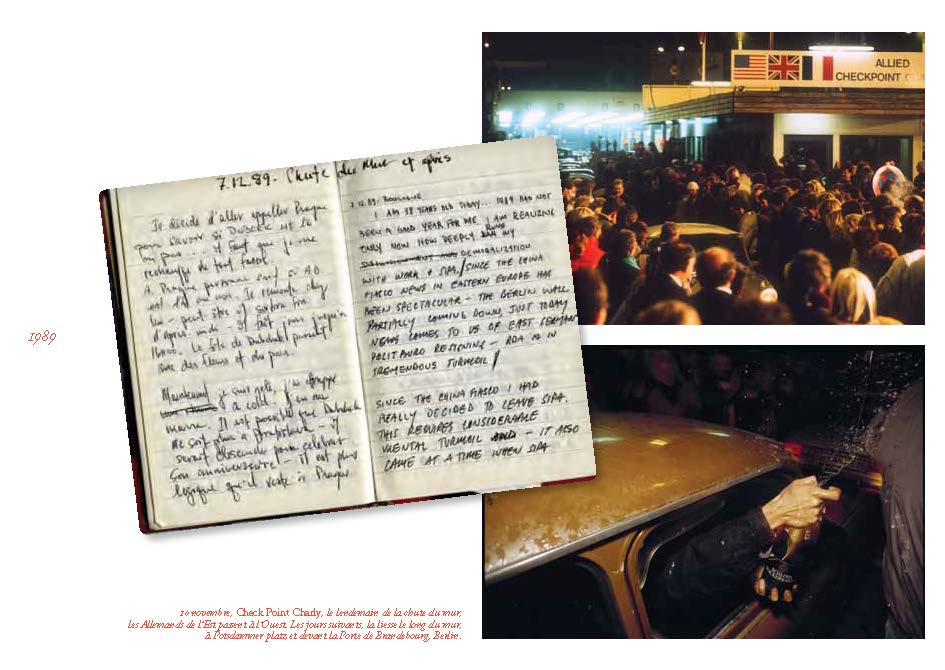 1989
7.12.89. Chute du Mur et après
Je décide d'aller appeller Prague
pour savoir si DUBCEK est là
ou pas... il faut que je me
rechappe de tout façon.
A Prague personne sauf à AD
est là ou non. Je remonte chez
lui - peut être il sortira
d'après midi - il fait jour jusqu'à
16h00. Le fils de Dubcek
avec des fleurs et du pain.
Maintenant je suis gelé, j'ai
a cold! j'en ai
marre. Il est possible que Dubcek
ne soit plus à Bratislava - il
serait descendu pour célébrer
Son anniversaire - il est plus
logique qu'il reste à Prague
7.12.89. BOULOGNE
I AM 38 YEARS OLD TODAY... 1989 HAS NOT
BEEN A GOOD YEAR FOR ME. I AM REALIZING
ONLY NOW HOW DEEPLY RUNS MY
DEMORALIZATION
WITH WORK & SIPA. / SINCE THE CHINA
FIASCO NEWS IN EASTERN EUROPE HAS
BEEN SPECTACULAR - THE BERLIN WALL
PARTIALLY COMING DOWN, JUST TODAY
NEWS COMES TO US OF EAST GERMAN
POLITBURO RESIGNING - RDA IS IN
TREMENDOUS TURMOIL /
SINCE THE CHINA FIASCO I HAD
REALLY DECIDED TO LEAVE SIPA.
THIS REQUIRES CONSIDERABLE
MENTAL TURMOIL - IT ALSO
CAME AT A TIME WHEN SIPA
ALLIED
CHECKPOINT C
10 novembre, Check Point Charly, le lendemain de la chute du mur,
les Allemands de l'Est passent à l'Ouest. Les jours suivants, la liesse le long du mur,
à Potsdammer platz et devant la Porte de Brandebourg, Berlin.